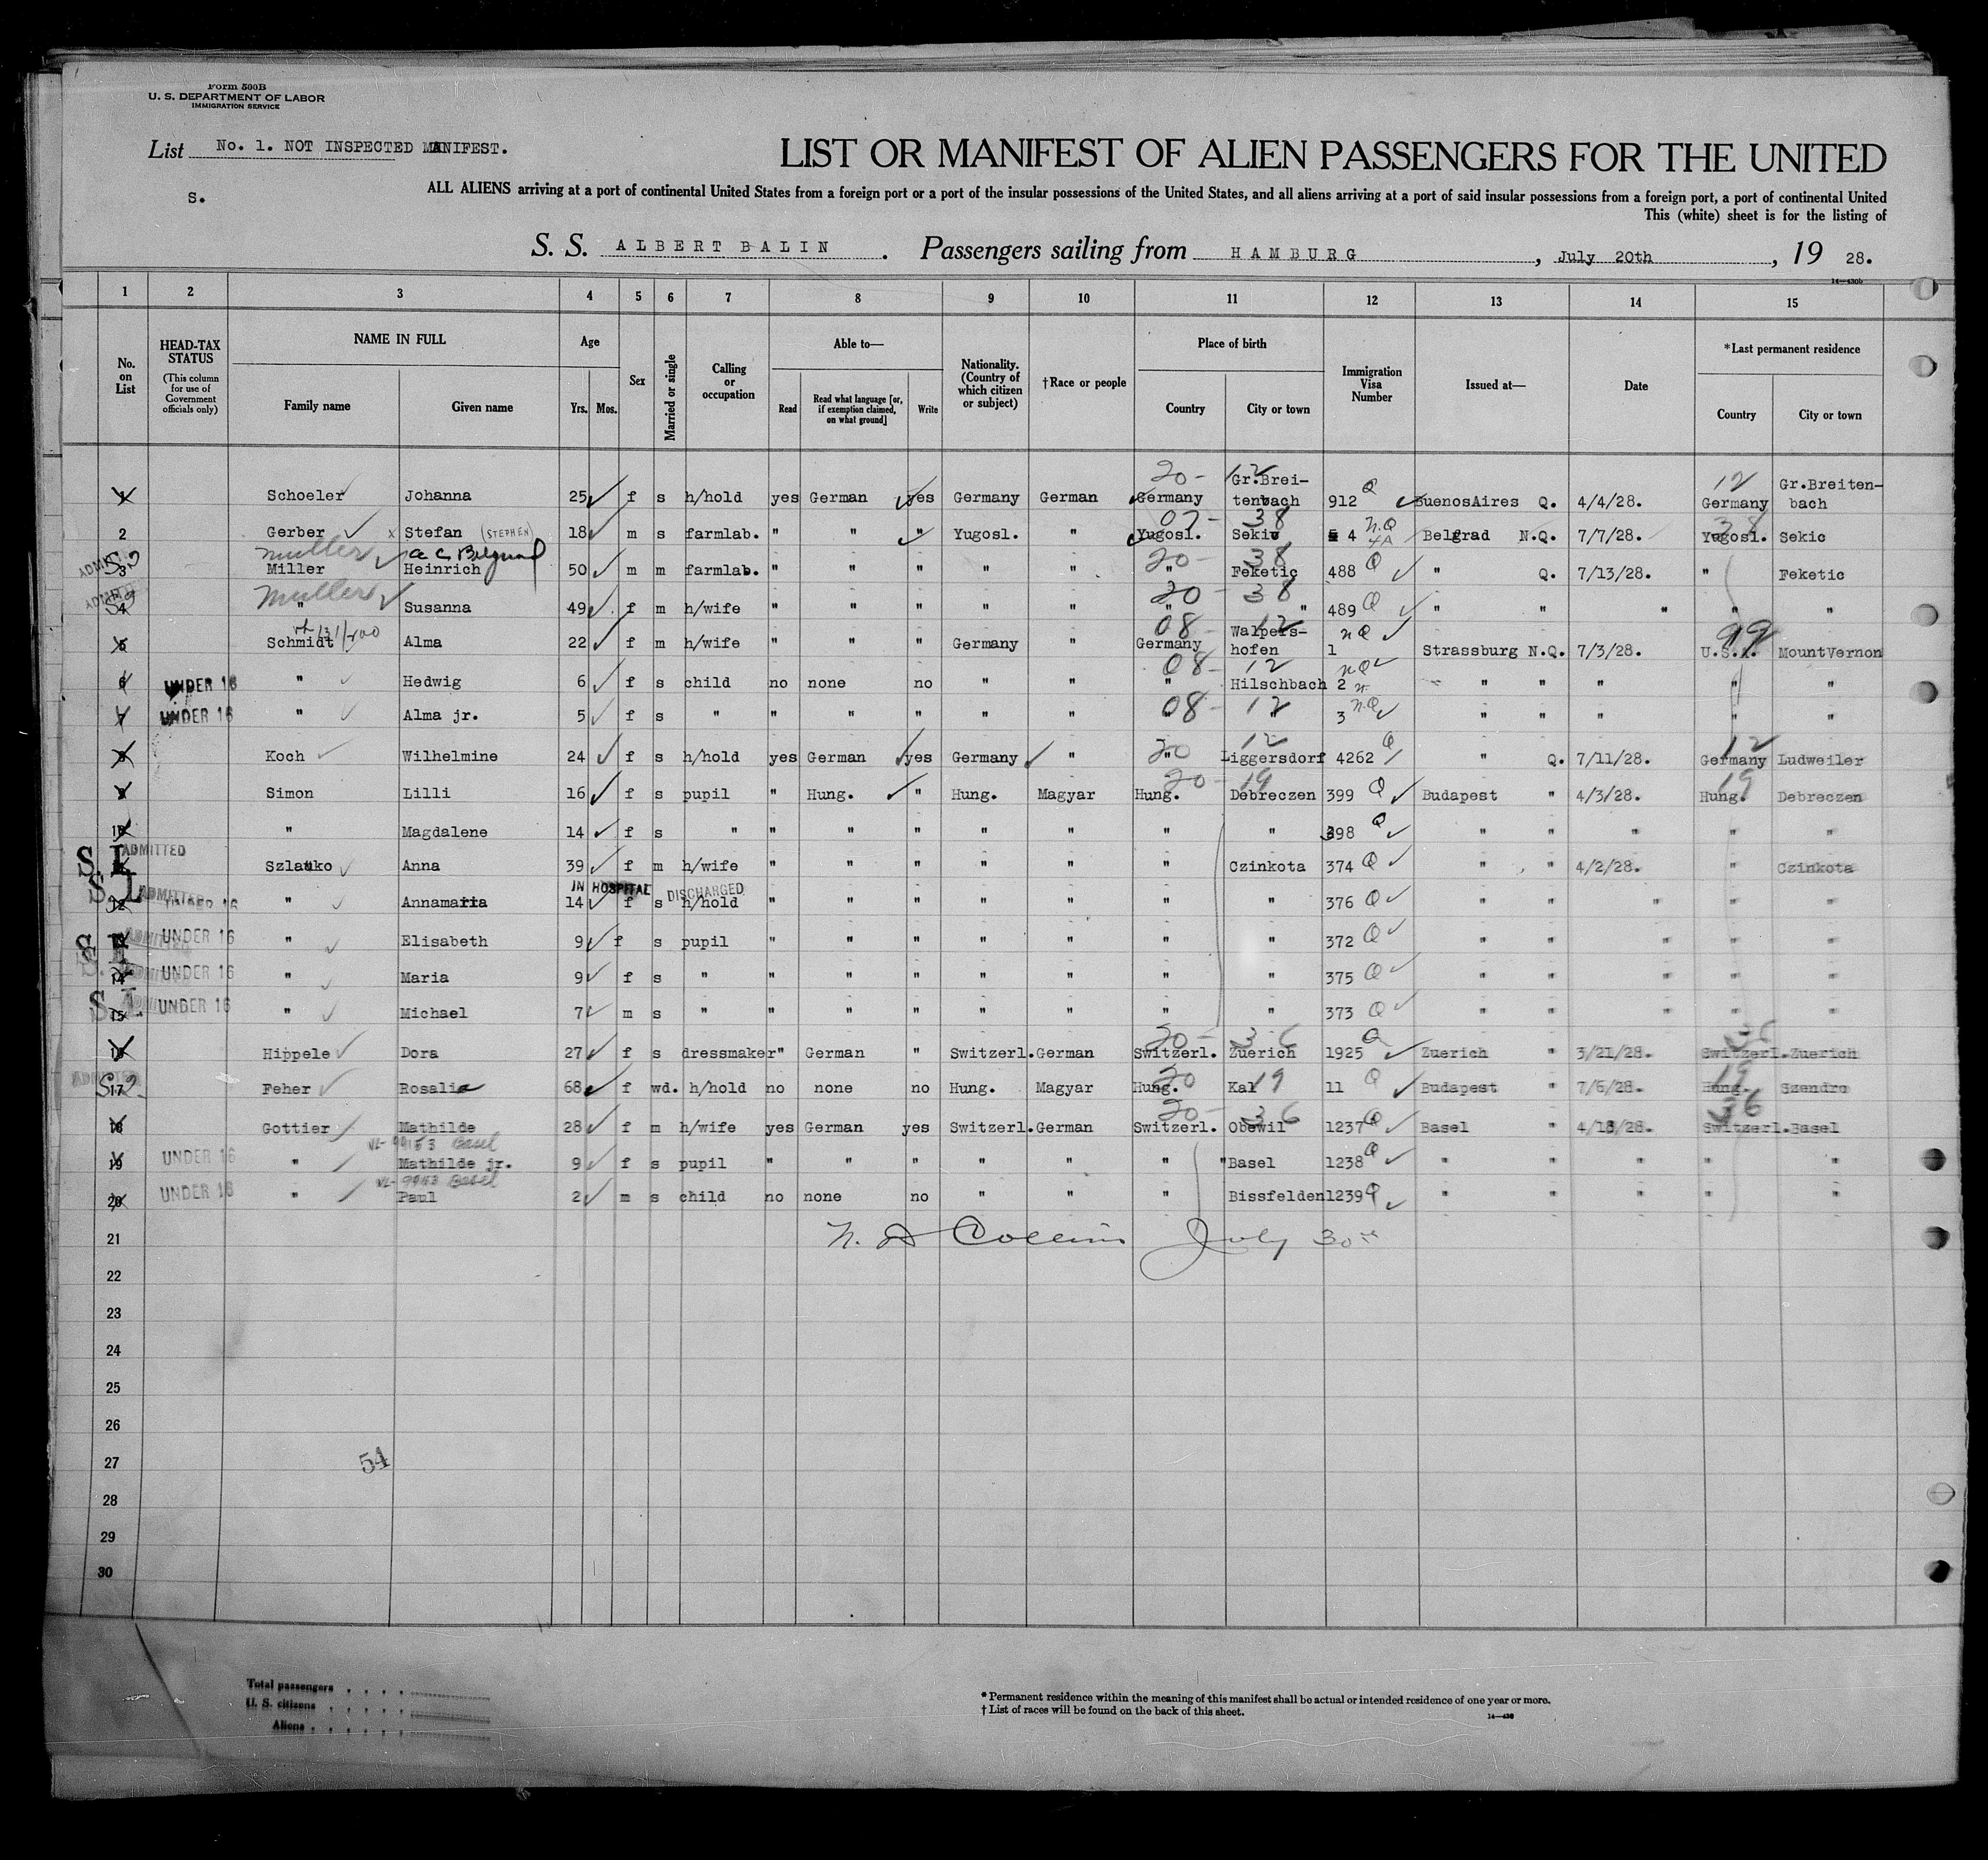 Form 500B
U. S. DEPARTMENT OF LABOR
IMMIGRATION SERVICE
List No. 1. NOT INSPECTED MANIFEST.
S.
LIST OR MANIFEST OF ALIEN PASSENGERS FOR THE UNITED
ALL ALIENS arriving at a port of continental United States from a foreign port or a port of the insular possessions of the United States, and all aliens arriving at a port of said insular possessions from a foreign port, a port of continental United
This (white) sheet is for the listing of
S. S. ALBERT BALIN . Passengers sailing from HAMBURG , July 20th , 19 28.
14—430b
1 2 3 4 5 6 7 8 9 10 11 12 13 14 15
No. on List
HEAD-TAX STATUS (This column for use of Government officials only)
NAME IN FULL Family name Given name
Age Yrs. Mos.
Sex
Married or single
Calling or occupation
Able to— Read Read what language [or, if exemption claimed, on what ground] Write
Nationality. (Country of which citizen or subject)
†Race or people
Place of birth Country City or town
Immigration Visa Number
Issued at—
Date
*Last permanent residence Country City or town
20- 12 12
1 Schoeler Johanna 25 f s h/hold yes German yes Germany German Germany Gr.Brei-tenbach 912 Q BuenosAires Q. 4/4/28. Germany Gr.Breiten-bach
07- 38 N.Q 38
2 Gerber Stefan (STEPHEN) 18 m s farmlab. " " " Yugosl. " Yugosl. Sekiv 4 Belgrad N.Q. 7/7/28. Yugosl. Sekic
Muller 20- 38
3 Miller Heinrich 50 m m farmlab. " " " " " " Feketic 488 Q " Q. 7/13/28. " Feketic
Muller 20 - 38
4 " Susanna 49 f m h/wife " " " " " " " 489 Q " " " " "
08- 12 99
5 Schmidt Alma 22 f m h/wife " " " Germany " Germany Walpers-hofen 1 nQ Strassburg N.Q. 7/3/28. U.S.A. MountVernon
08- 12
6 UNDER 16 " Hedwig 6 f s child no none no " " " Hilschbach 2 nQ " " " " "
08- 12
7 UNDER 16 " Alma jr. 5 f s " " " " " " " " 3 n.Q " " " " "
20 12 12
8 Koch Wilhelmine 24 f s h/hold yes German yes Germany " " Liggersdorf 4262 Q " Q. 7/11/28. Germany Ludweiler
20- 19 19
9 Simon Lilli 16 f s pupil " Hung. " Hung. Magyar Hung. Debreczen 399 Q Budapest " 4/3/28. Hung. Debreczen
10 " Magdalene 14 f s " " " " " " " " 398 Q " " " " "
S.I. ADMITTED
11 Szlauko Anna 39 f m h/wife " " " " " " Czinkota 374 Q " " 4/2/28. " Czinkota
S.I. ADMITTED IN HOSPITAL DISCHARGED
12 UNDER 16 " Annamaria 14 f s h/hold " " " " " " " 376 Q " " " " "
S.I. ADMITTED
13 UNDER 16 " Elisabeth 9 f s pupil " " " " " " " 372 Q " " " " "
S.I. ADMITTED
14 UNDER 16 " Maria 9 f s " " " " " " " " 375 Q " " " " "
S.I. ADMITTED
15 UNDER 16 " Michael 7 m s " " " " " " " " 373 Q " " " " "
20- 36 36
16 Hippele Dora 27 f s dressmaker " German " Switzerl. German Switzerl. Zuerich 1925 Q Zuerich " 3/21/28. Switzerl. Zuerich
ADMITTED 20 19 19
17 Feher Rosalia 68 f wd. h/hold no none no Hung. Magyar Hung. Kal 11 Q Budapest " 7/6/28. Hung. Szendro
20- 36 36
18 Gottier Mathilde 28 f m h/wife yes German yes Switzerl. German Switzerl. Obewil 1237 Q Basel " 4/18/28. Switzerl. Basel
19 UNDER 16 " Mathilde jr. 9 f s pupil " " " " " " "Basel 1238 Q " " " " "
20 UNDER 16 " Paul 2 m s child no none no " " " Bissfelden 1239 Q " " " " "
21 Collins July 30th
22
23
24
25
26
27
54
28
29
30
Total passengers
U. S. citizens
Aliens
* Permanent residence within the meaning of this manifest shall be actual or intended residence of one year or more.
† List of races will be found on the back of this sheet.
14—430